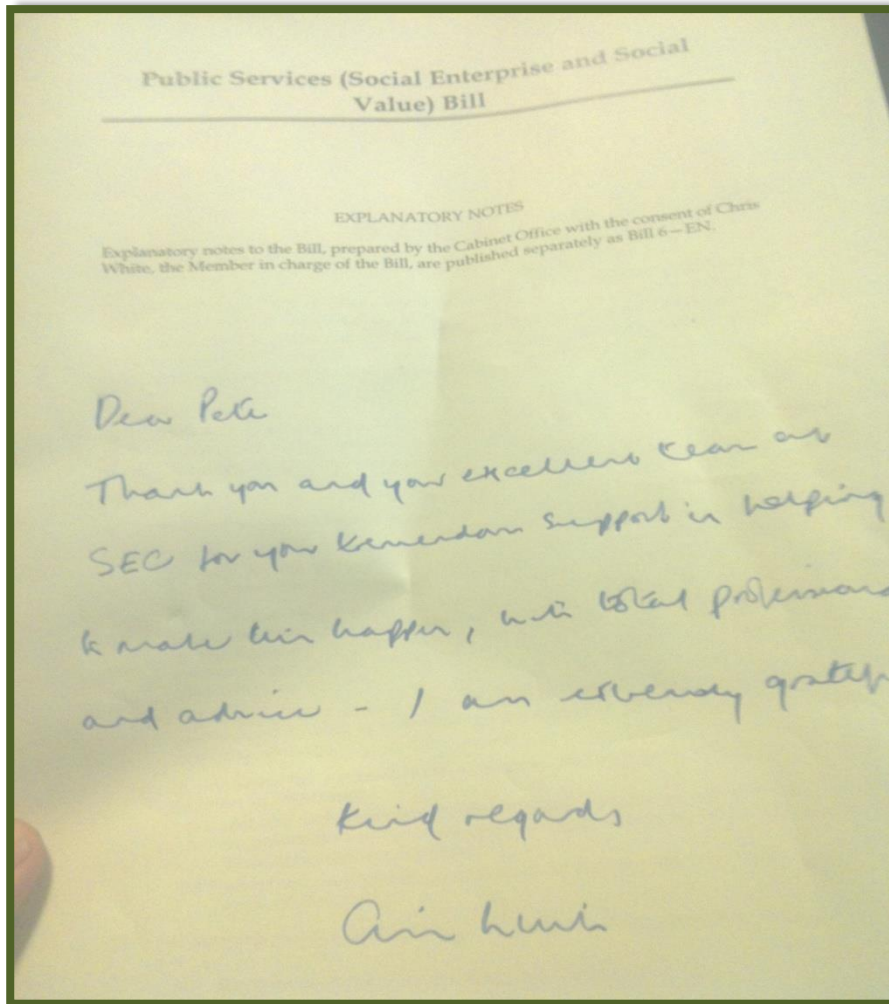 Public Services (Social Enterprise and Social
Value) Bill
EXPLANATORY NOTES
Explanatory notes to the Bill, prepared by the Cabinet Office with the consent of Chris
White, the Member in charge of the Bill, are published separately as Bill 6—EN.
Dear Pete
Thank you and your excellent team at
SEC for your tremendous support in helping
to make this happen, with total
and advice - I am extremely
Kind regards
Chris White